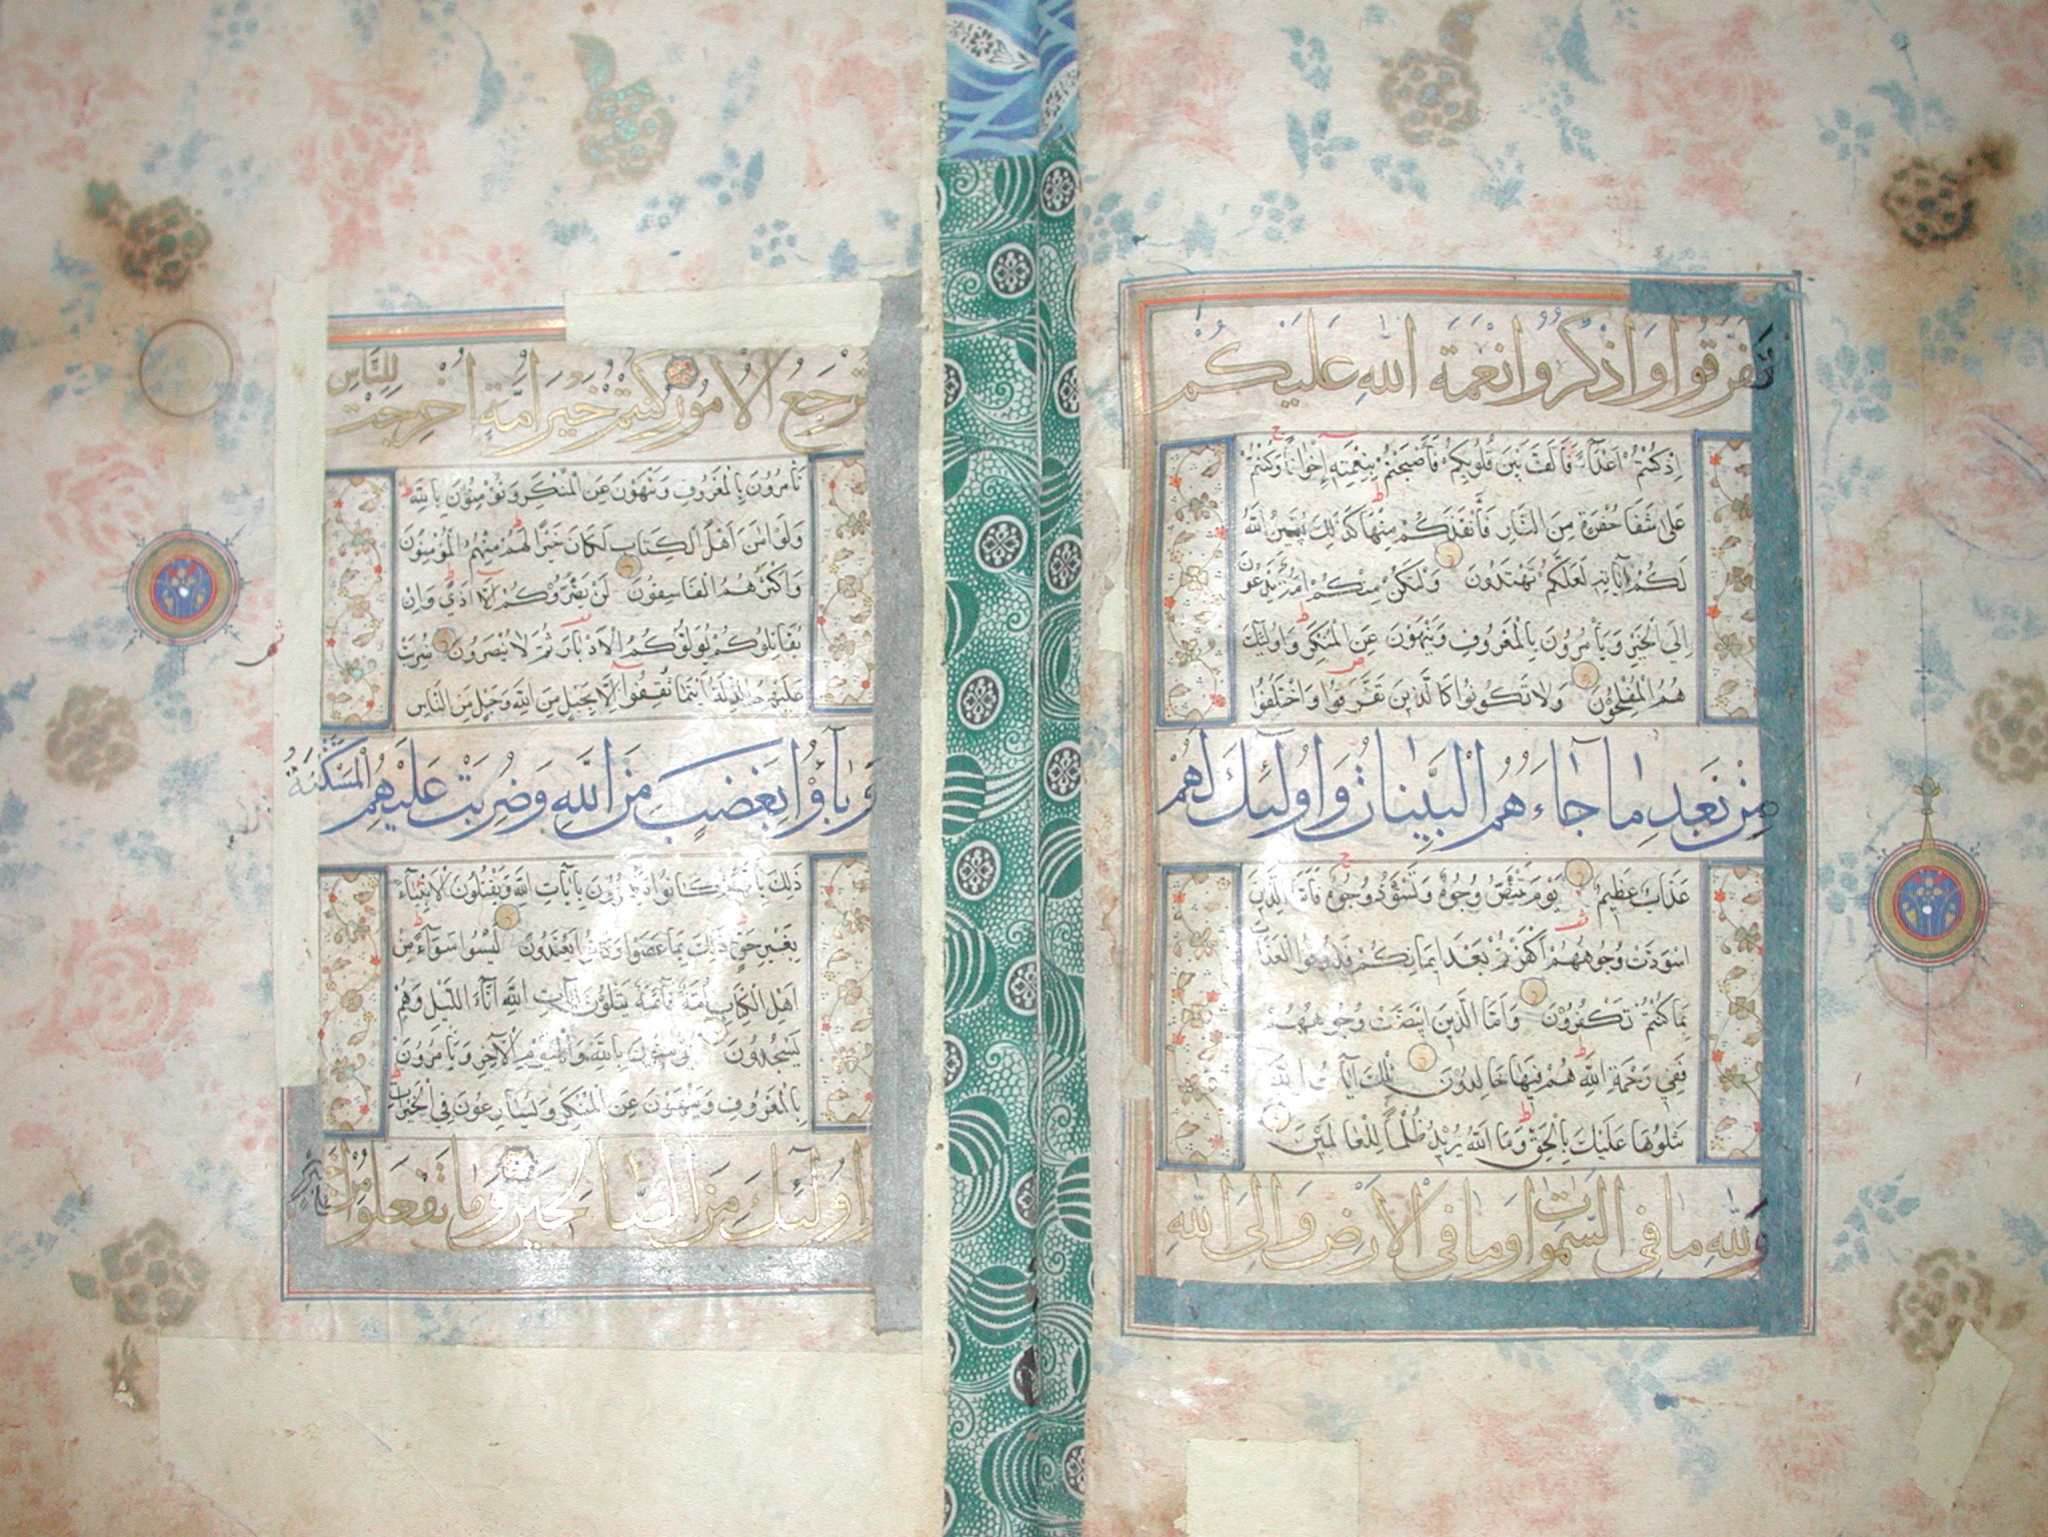 تَفَرَّقُوا وَاذْكُرُوا نِعْمَةَ اللَّهِ عَلَيْكُمْ
اِذْ كُنْتُمْ اَعْدَآءً فَاَلَّفَ بَيْنَ قُلُوبِكُمْ فَاَصْبَحْتُمْ بِنِعْمَتِهِ اِخْوَانًا وَكُنْتُمْ
عَلَى شَفَا حُفْرَةٍ مِنَ النَّارِ فَاَنْقَذَكُمْ مِنْهَا كَذَلِكَ يُبَيِّنُ اللَّهُ
لَكُمْ اٰيَاتِهِ لَعَلَّكُمْ تَهْتَدُونَ وَلْتَكُنْ مِنْكُمْ اُمَّةٌ يَدْعُونَ
اِلَى الْخَيْرِ وَيَاْمُرُونَ بِالْمَعْرُوفِ وَيَنْهَوْنَ عَنِ الْمُنْكَرِ وَاُولَئِكَ
هُمُ الْمُفْلِحُونَ وَلَا تَكُونُوا كَالَّذِينَ تَفَرَّقُوا وَاخْتَلَفُوا
مِنْ بَعْدِ مَا جَآءَهُمُ الْبَيِّنَاتُ وَاُولَٓئِكَ لَهُمْ
عَذَابٌ عَظِيمٌ يَوْمَ تَبْيَضُّ وُجُوهٌ وَتَسْوَدُّ وُجُوهٌ فَاَمَّا الَّذِينَ
اسْوَدَّتْ وُجُوهُهُمْ اَكَفَرْتُمْ بَعْدَ اِيمَانِكُمْ فَذُوقُوا الْعَذَابَ
بِمَا كُنْتُمْ تَكْفُرُونَ وَاَمَّا الَّذِينَ ابْيَضَّتْ وُجُوهُهُمْ
فَفِي رَحْمَةِ اللَّهِ هُمْ فِيهَا خَالِدُونَ تِلْكَ اٰيَاتُ اللَّهِ
نَتْلُوهَا عَلَيْكَ بِالْحَقِّ وَمَا اللَّهُ يُرِيدُ ظُلْمًا لِلْعَالَمِينَ
وَلِلَّهِ مَا فِي السَّمٰوَاتِ وَمَا فِي الْاَرْضِ وَاِلَى اللَّهِ
تُرْجَعُ الْاُمُورُ كُنْتُمْ خَيْرَ اُمَّةٍ اُخْرِجَتْ لِلنَّاسِ
تَاْمُرُونَ بِالْمَعْرُوفِ وَتَنْهَوْنَ عَنِ الْمُنْكَرِ وَتُؤْمِنُونَ بِاللَّهِ
وَلَوْ اٰمَنَ اَهْلُ الْكِتَابِ لَكَانَ خَيْرًا لَهُمْ مِنْهُمُ الْمُؤْمِنُونَ
وَاَكْثَرُهُمُ الْفَاسِقُونَ لَنْ يَضُرُّوكُمْ اِلَّا اَذًى وَاِنْ
يُقَاتِلُوكُمْ يُوَلُّوكُمُ الْاَدْبَارَ ثُمَّ لَا يُنْصَرُونَ ضُرِبَتْ
عَلَيْهِمُ الذِّلَّةُ اَيْنَمَا ثُقِفُوا اِلَّا بِحَبْلٍ مِنَ اللَّهِ وَحَبْلٍ مِنَ النَّاسِ
وَبَآؤُا بِغَضَبٍ مِنَ اللَّهِ وَضُرِبَتْ عَلَيْهِمُ الْمَسْكَنَةُ
ذَلِكَ بِاَنَّهُمْ كَانُوا يَكْفُرُونَ بِاٰيَاتِ اللَّهِ وَيَقْتُلُونَ الْاَنْبِيَآءَ
بِغَيْرِ حَقٍّ ذَلِكَ بِمَا عَصَوْا وَكَانُوا يَعْتَدُونَ لَيْسُوا سَوَآءً مِنْ
اَهْلِ الْكِتَابِ اُمَّةٌ قَآئِمَةٌ يَتْلُونَ اٰيَاتِ اللَّهِ اٰنَآءَ اللَّيْلِ وَهُمْ
يَسْجُدُونَ يُؤْمِنُونَ بِاللَّهِ وَالْيَوْمِ الْاٰخِرِ وَيَاْمُرُونَ
بِالْمَعْرُوفِ وَيَنْهَوْنَ عَنِ الْمُنْكَرِ وَيُسَارِعُونَ فِي الْخَيْرَاتِ
وَاُولَٓئِكَ مِنَ الصَّالِحِينَ وَمَا تَفْعَلُوا مِنْ خَيْرٍ